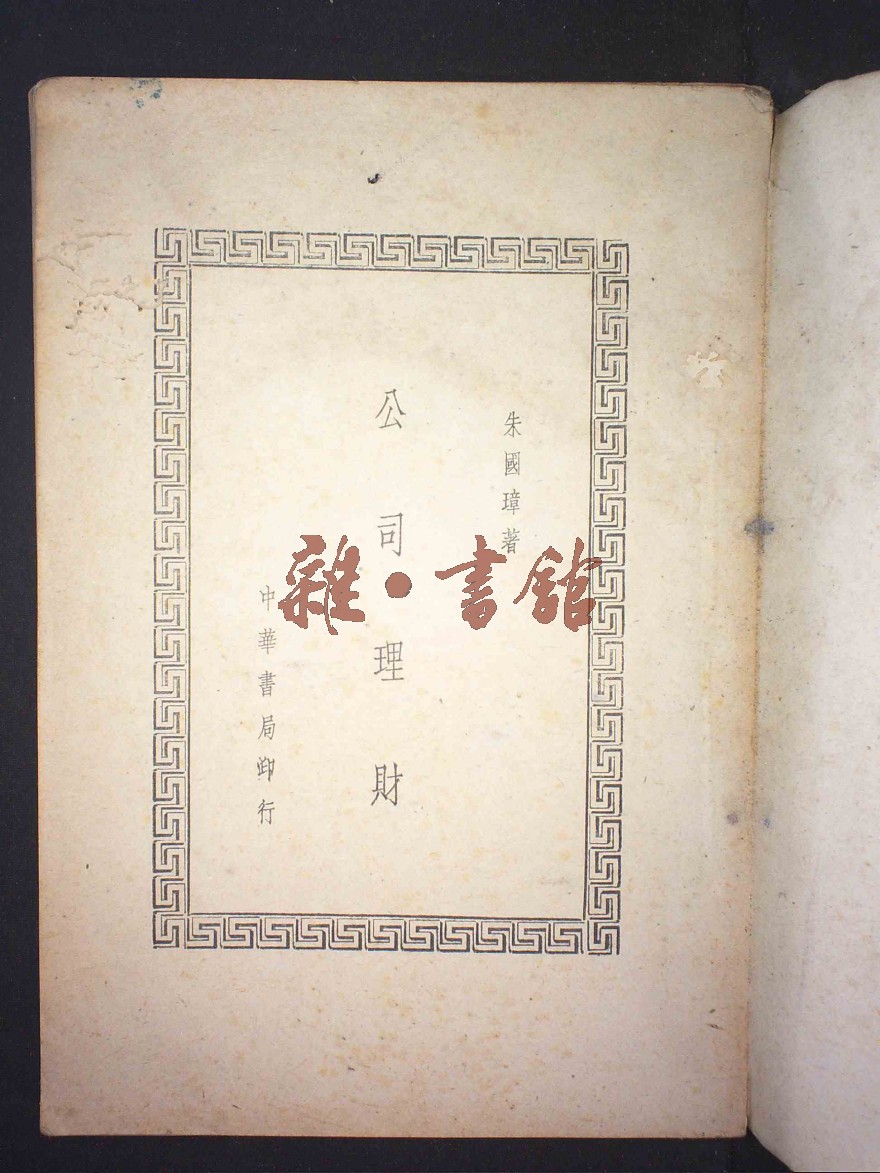 朱國璋著
公司理財
中華書局印行
雜·書館